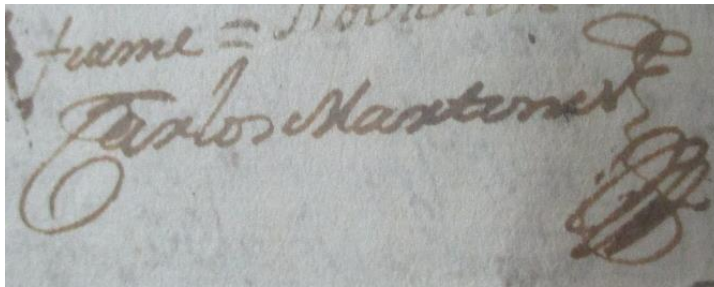 frame =
Carlos Martinez